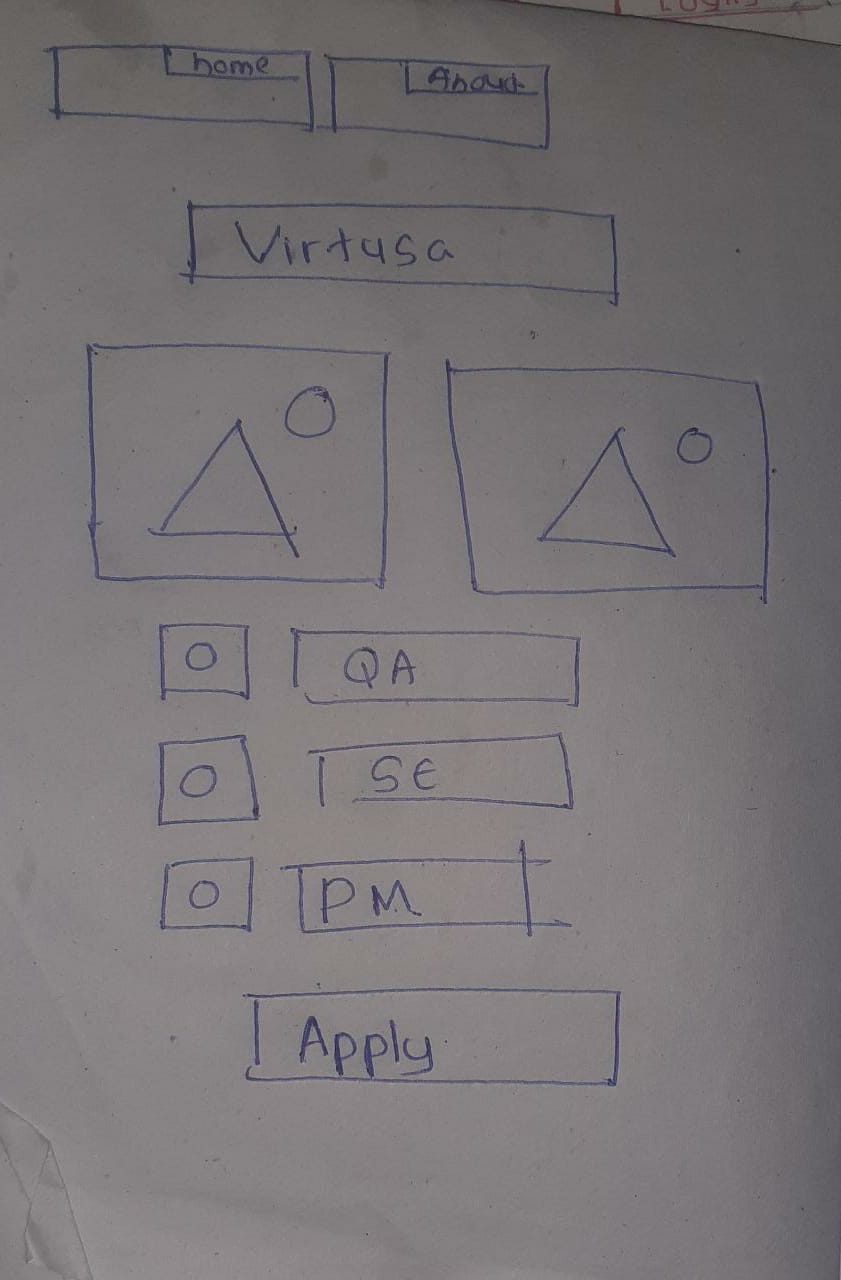 home About
Virtusa
QA
SE
PM
Apply